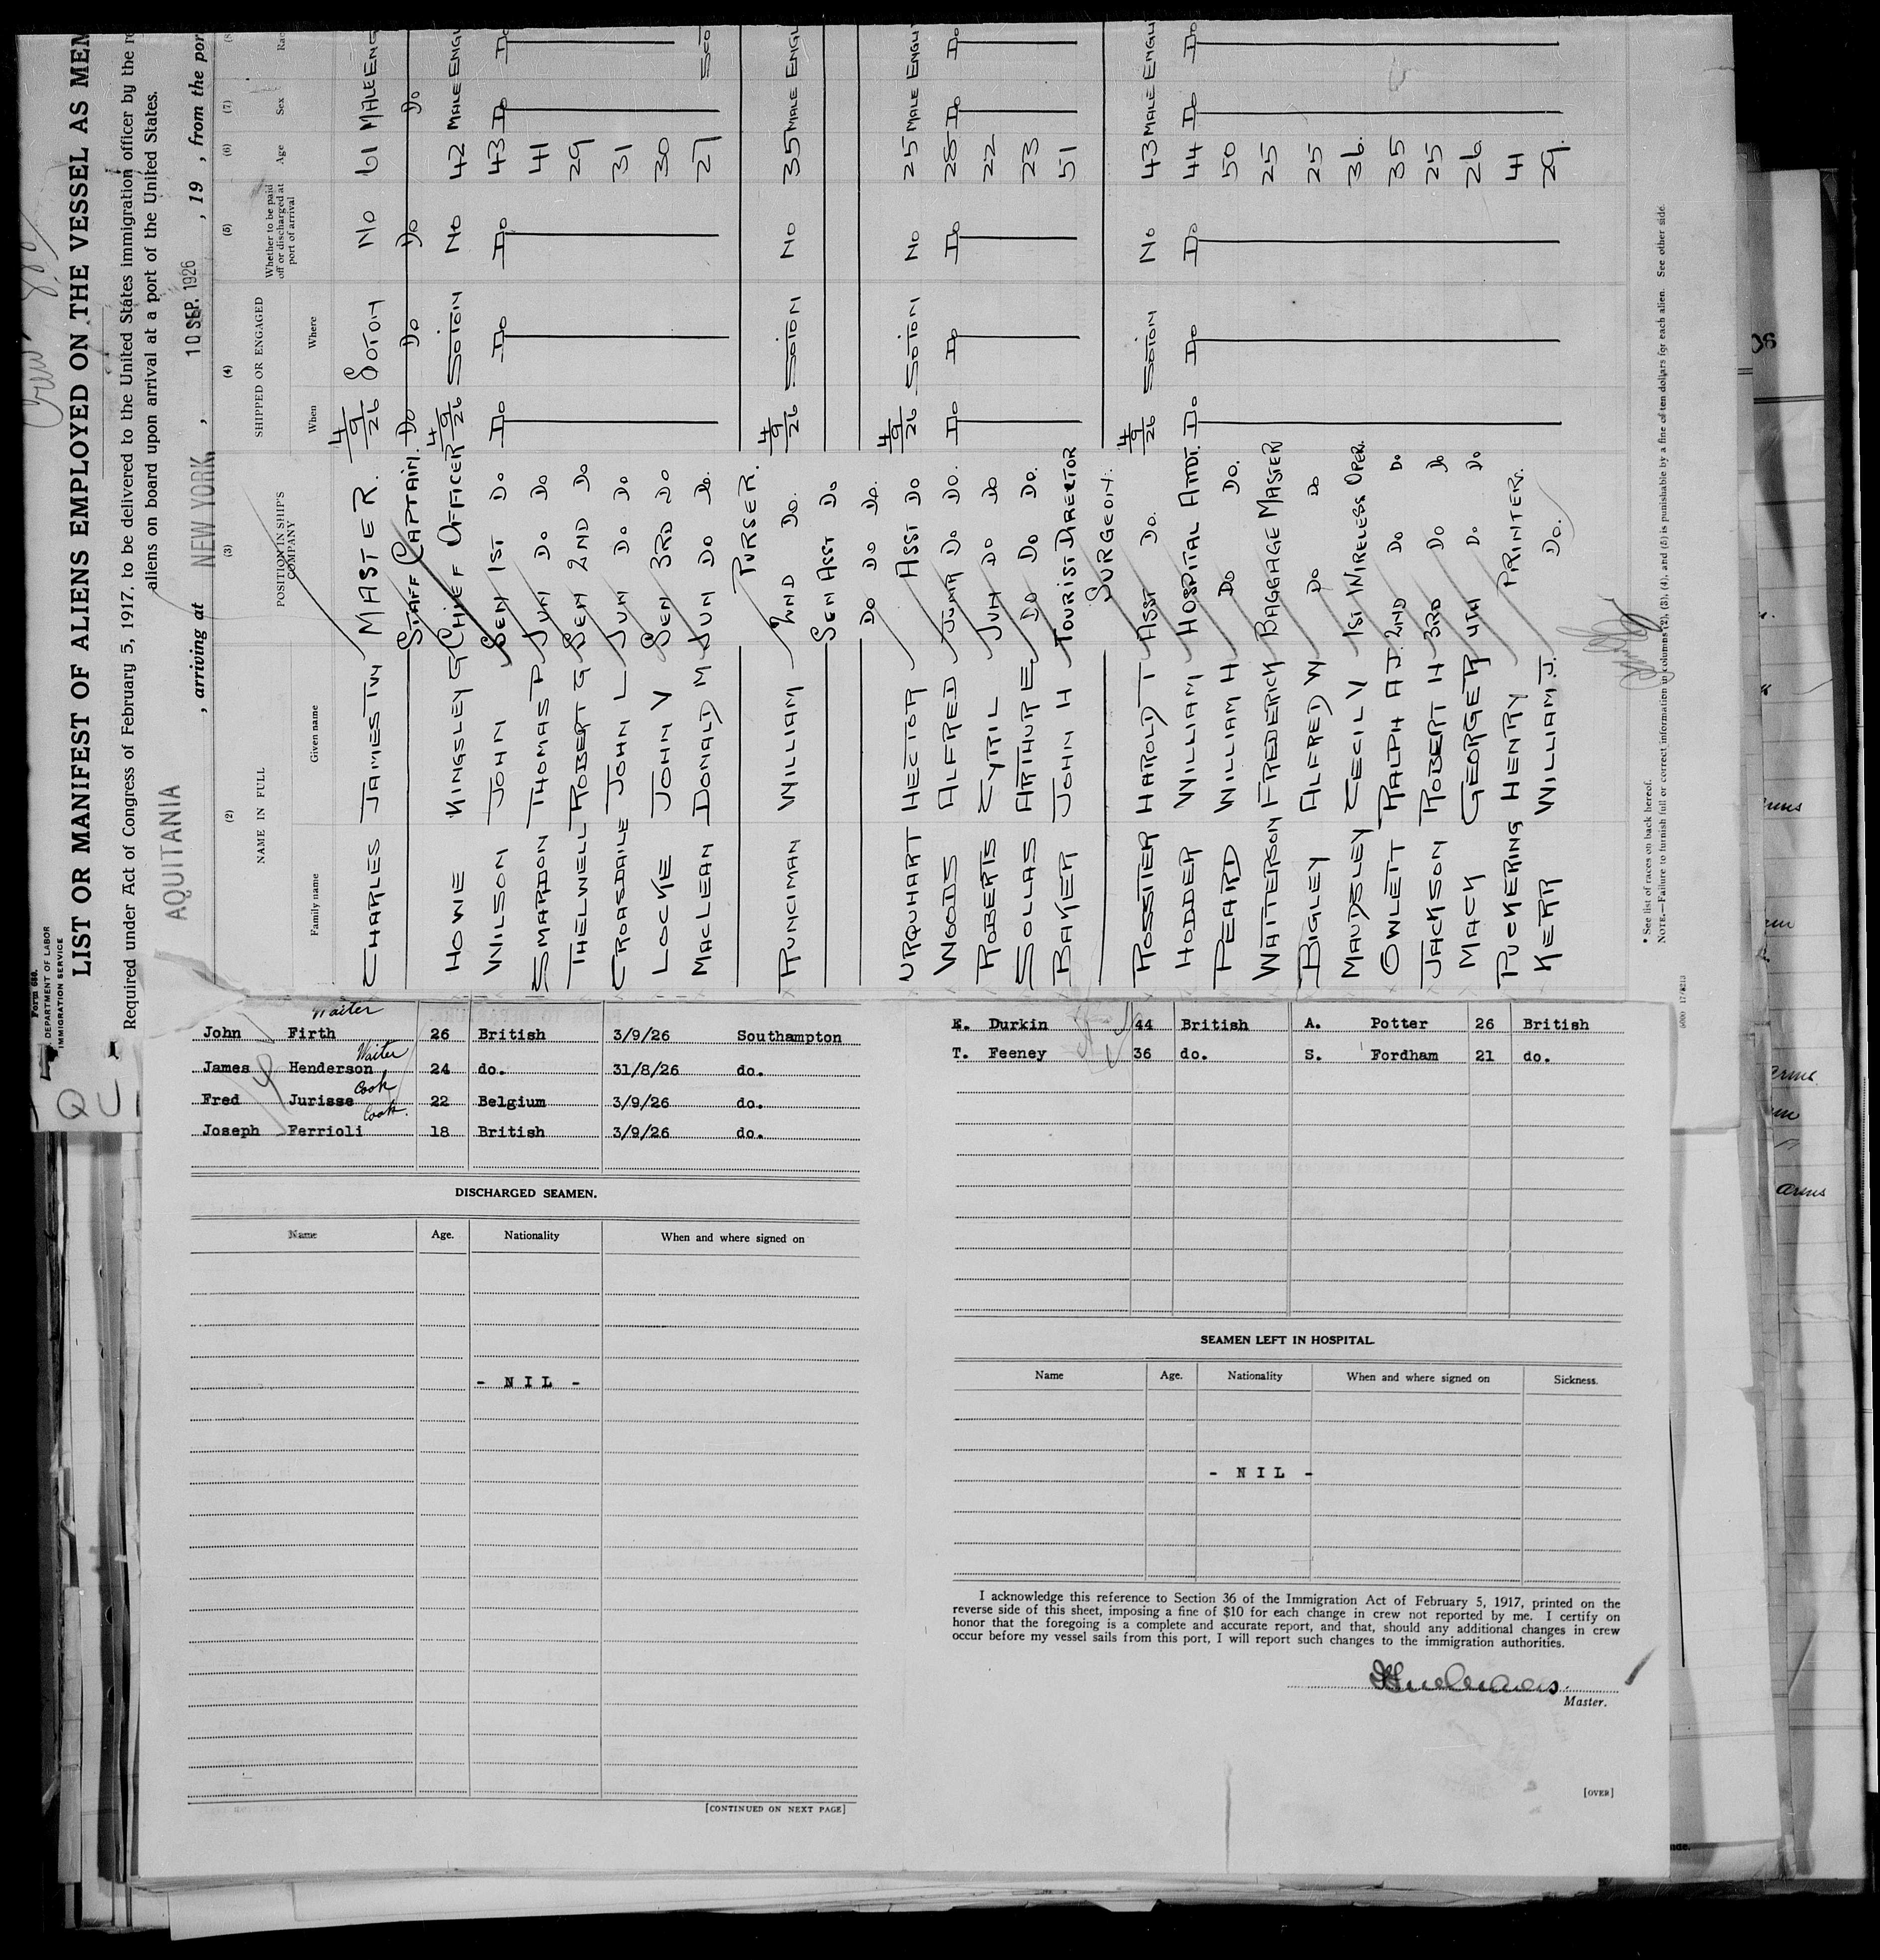 Form 680.
DEPARTMENT OF LABOR
IMMIGRATION SERVICE
LIST OR MANIFEST OF ALIENS EMPLOYED ON THE VESSEL AS MEM
Required under Act of Congress of February 5, 1917, to be delivered to the United States immigration officer by the
aliens on board upon arrival at a port of the United States.
AQUITANIA , arriving at NEW YORK, 10 SEP. 1926 , 19 , from the por
(2) (3) (4) (5) (6) (7)
NAME IN FULL POSITION IN SHIP'S COMPANY SHIPPED OR ENGAGED Whether to be paid off or discharged at port of arrival Age Sex
Family name Given name When Where
CHARLES JAMES T W MASTER. 4/9/26 SOTON NO 61 MALE ENG
STAFF CAPTAIN. DO DO DO DO
HOWE KINGSLEY G CHIEF OFFICER 4/9/26 SOTON NO 42 MALE ENGLI
WILSON JOHN SEN 1ST DO DO DO DO 43 DO DO
SMARDON THOMAS P JUN DO DO 41
THELWELL ROBERT G SEN 2ND DO 29
CROASDAILE JOHN L JUN DO DO 31
LOCKE JOHN V SEN 3RD DO 30
MACLEAN DONALD M JUN DO DO. 27 SCO
PURSER.
RUNCIMAN WILLIAM 2ND DO. 4/9/26 SOTON NO 35 MALE ENGLI
SEN ASST DO
DO DO DO.
URQUHART HECTOR ASST DO 4/9/26 SOTON NO 25 MALE ENGLI
WOODS ALFRED JUNR DO DO. DO DO DO 28 DO DO
ROBERTS CYRIL JUN DO DO 22
SOLLAS ARTHUR E DO DO DO. 23
BAKER JOHN H TOURIST DIRECTOR 51
SURGEON.
ROSSITER HAROLD T ASST DO. 4/9/26 SOTON NO 43 MALE ENGLI
HODDER WILLIAM HOSPITAL ATTDT. DO DO DO 44 DO DO
PEARD WILLIAM H DO DO. 50
WATTERSON FREDERICK BAGGAGE MASTER 25
BIGLEY ALFRED W DO DO 25
MAUDSLEY CECIL V 1ST WIRELESS OPER. 36.
OWLETT RALPH A J. 2ND DO DO 35
JACKSON ROBERT H 3RD DO DO 25
MACK GEORGE R 4TH DO DO 26.
PUCKERING HENRY PRINTER. 41
KERR WILLIAM J. DO. 29.
* See list of races on back hereof.
NOTE.—Failure to furnish full or correct information in columns (2), (3), (4), and (5) is punishable by a fine of ten dollars for each alien. See other side.
QUI
Waiter
John Firth 26 British 3/9/26 Southampton
Waiter
James Henderson 24 do. 31/8/26 do.
Cook
Fred Jurisse 22 Belgium 3/9/26 do.
Cook.
Joseph Ferrioli 18 British 3/9/26 do.
DISCHARGED SEAMEN.
Name Age. Nationality When and where signed on
- N I L -
[CONTINUED ON NEXT PAGE]
E. Durkin 44 British A. Potter 26 British
T. Feeney 36 do. S. Fordham 21 do.
SEAMEN LEFT IN HOSPITAL.
Name Age. Nationality When and where signed on Sickness.
- N I L -
I acknowledge this reference to Section 36 of the Immigration Act of February 5, 1917, printed on the
reverse side of this sheet, imposing a fine of $10 for each change in crew not reported by me. I certify on
honor that the foregoing is a complete and accurate report, and that, should any additional changes in crew
occur before my vessel sails from this port, I will report such changes to the immigration authorities.
Master.
[OVER]
arms